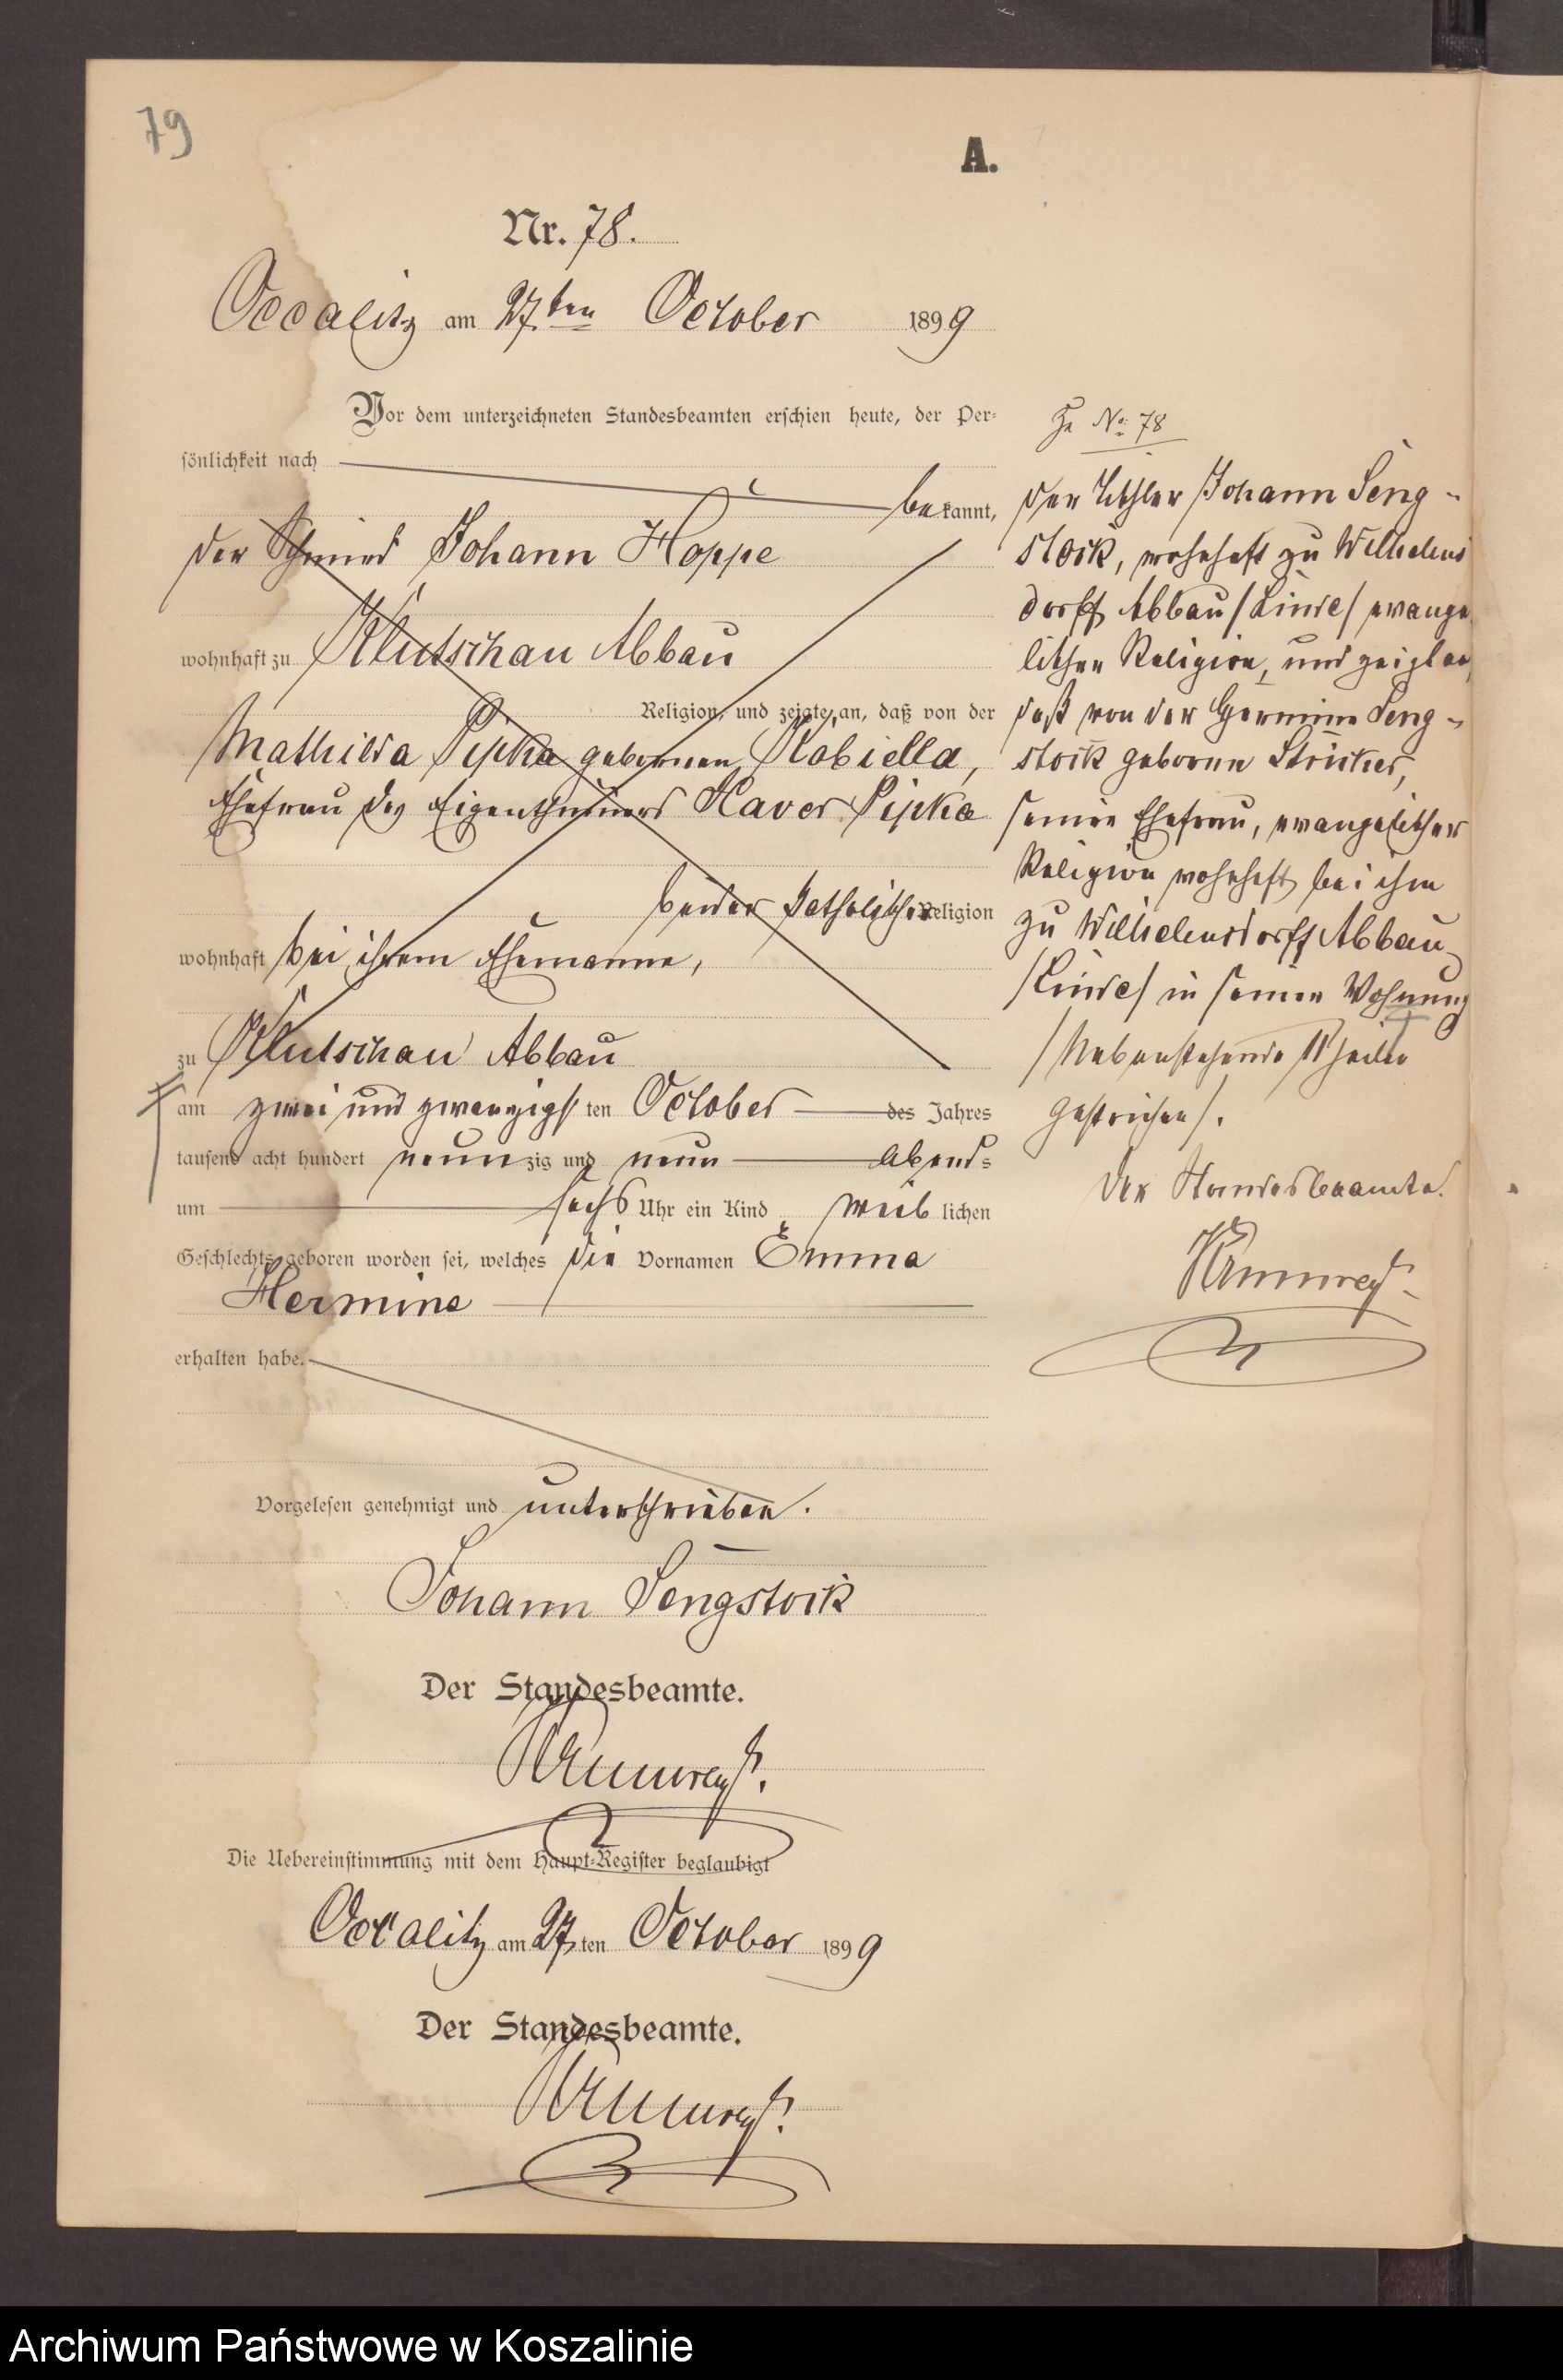 79
A.
Nr. 78.
Occalitz am 27ten October 1899
Vor dem unterzeichneten Standesbeamten erschien heute, der Per-
sönlichkeit nach
bekannt,
der Schmied Johann Hoppe
wohnhaft zu Klutschau Abbau
Religion, und zeigte an, daß von der
Mathilda Pipka geborenen Kobiella,
Ehefrau des Eigenthümers Xaver Pipka
beider katholischer Religion
wohnhaft bei ihrem Ehemanne,
zu Klutschau Abbau
am zwei und zwanzigsten October des Jahres
tausend acht hundert neunzig und neun Abends
um sechs Uhr ein Kind weiblichen
Geschlechts geboren worden sei, welches die Vornamen Emma
Hermine
erhalten habe.
Vorgelesen genehmigt und unterschrieben.
Johann Sengstock
Der Standesbeamte.
Die Uebereinstimmung mit dem Haupt-Register beglaubigt
Occalitz am 27ten October 1899
Der Standesbeamte.
Zu No. 78
der Johann Seng-
stock, wohnhaft zu Wilhelms
dorff Abbau /Linde/ evange
lischer Religion, und zeigte an,
daß von der Hermine Seng-
stock geborene
seiner Ehefrau, evangelischer
Religion wohnhaft bei ihm
zu Wilhelmsdorff Abbau
/Linde/ in seiner Wohnung
/Nebenstehende 11 Zeilen
gestrichen/.
Der Standesbeamte.
Archiwum Państwowe w Koszalinie